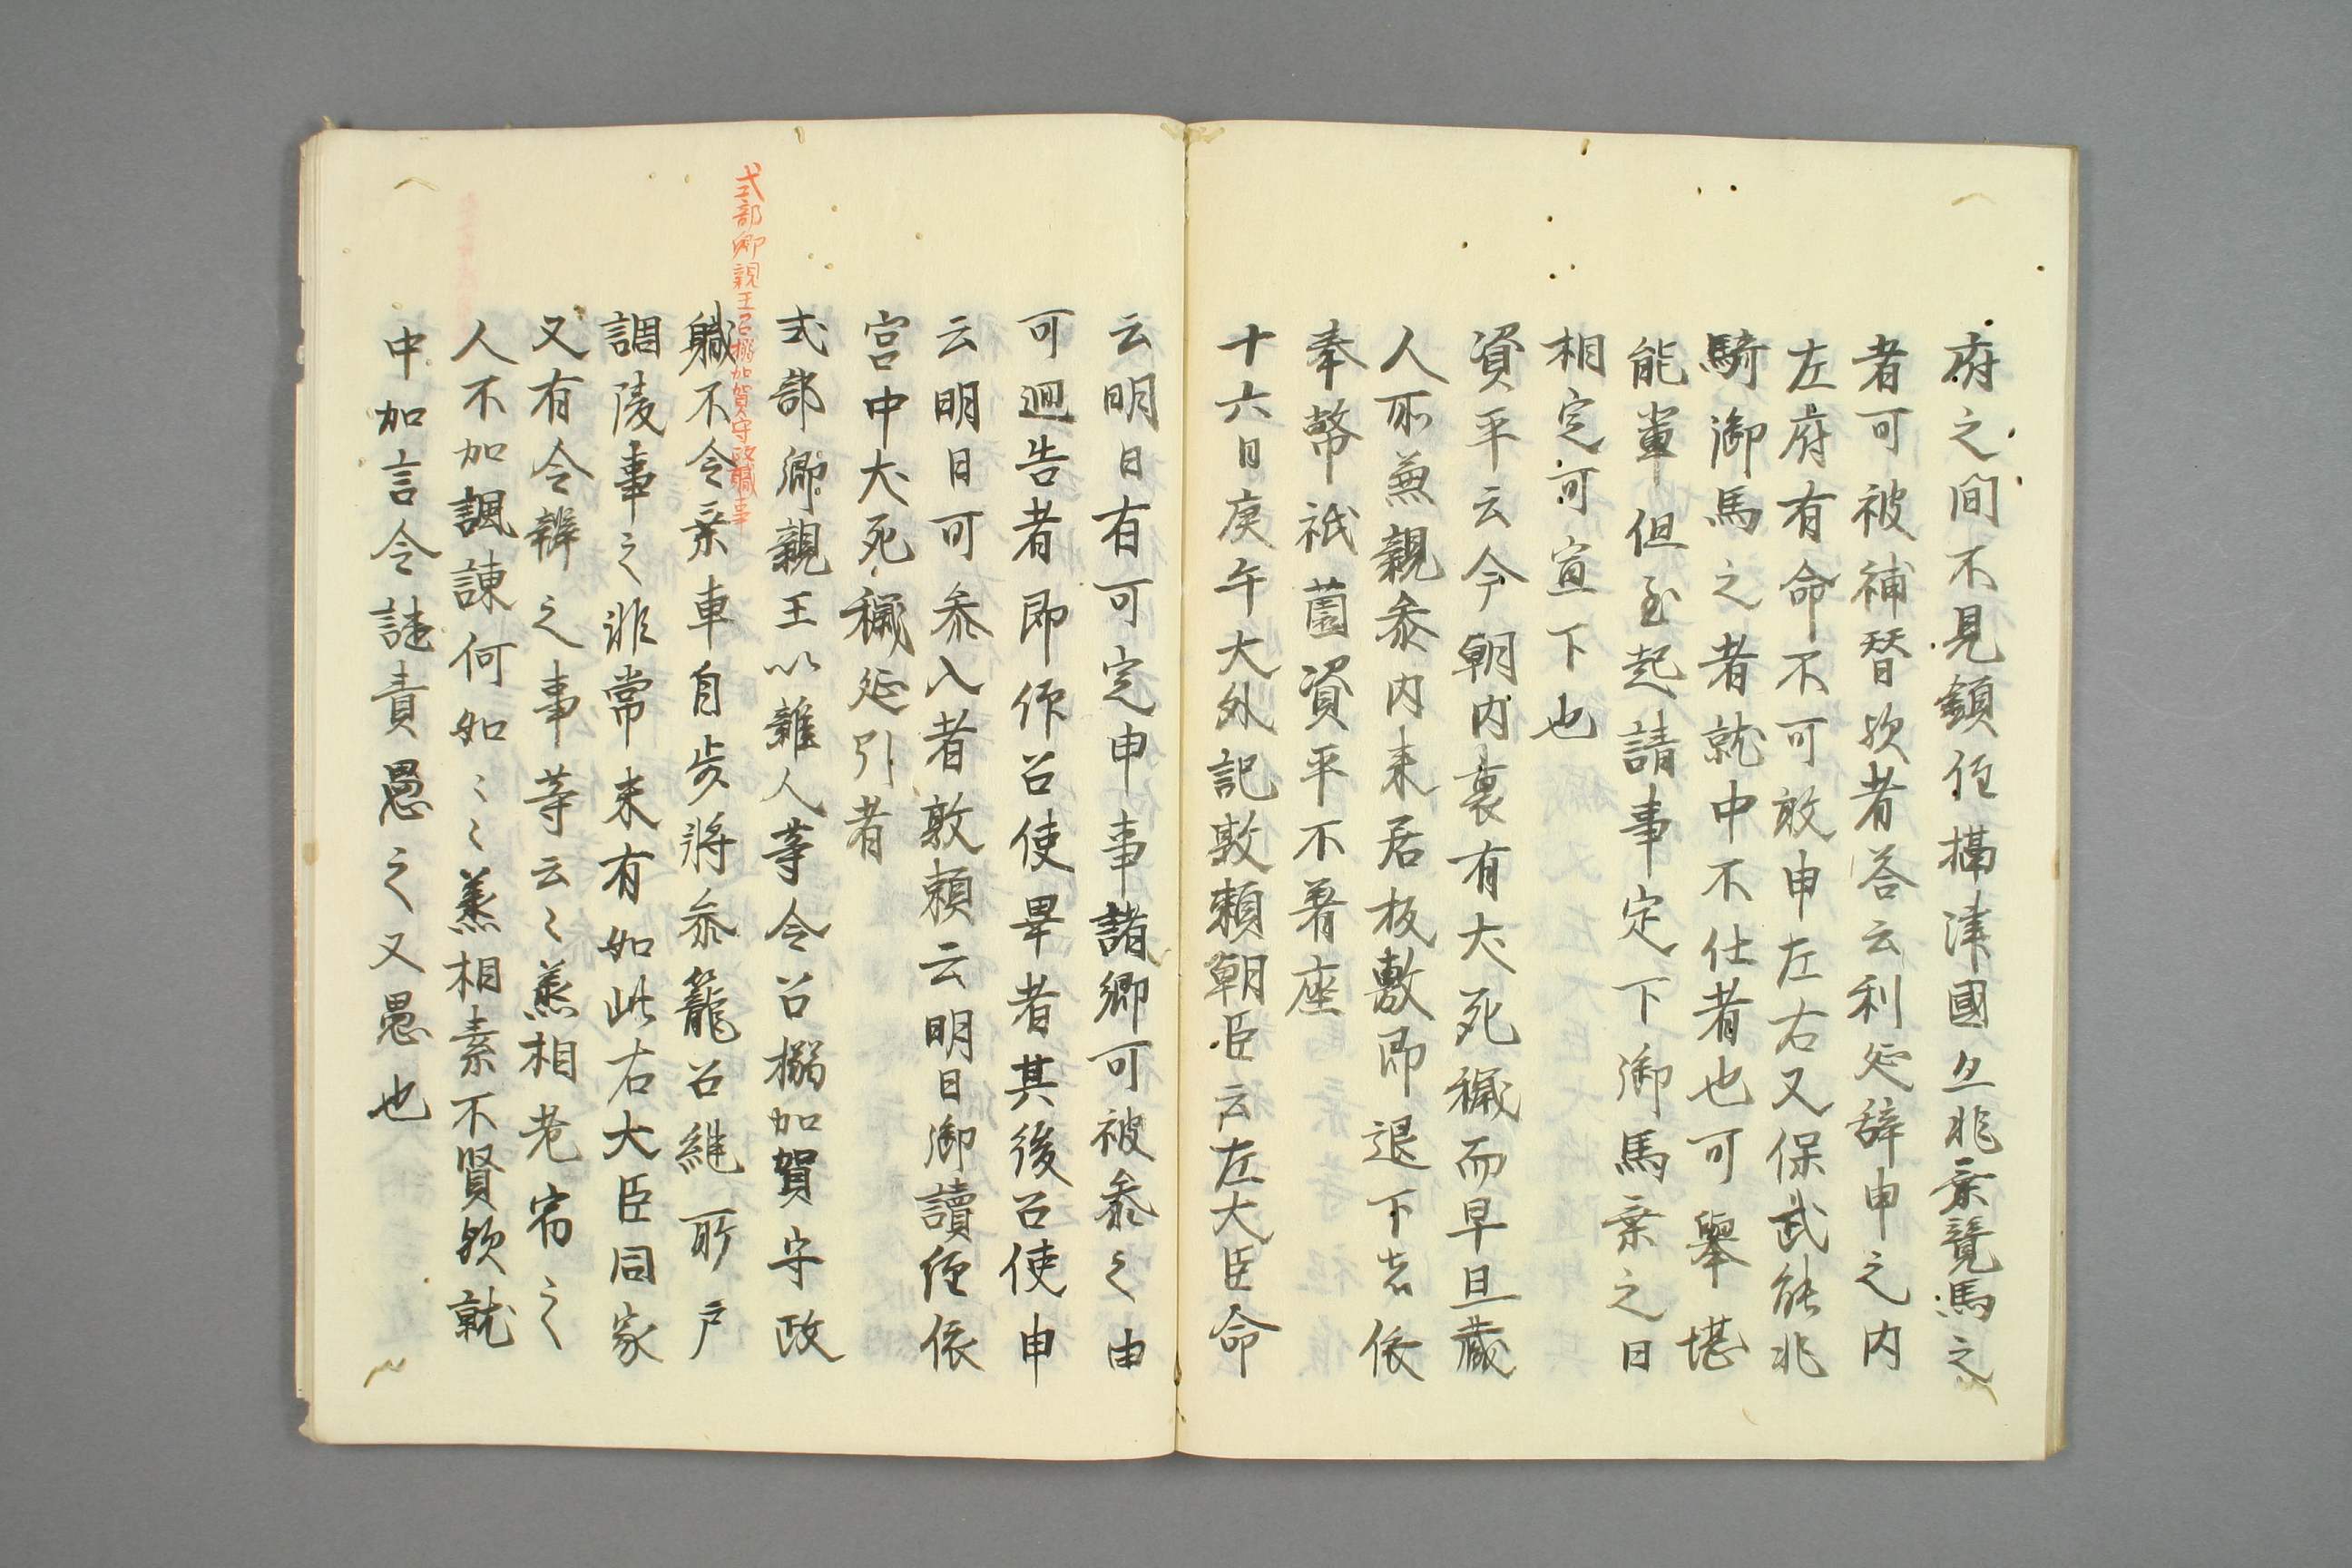 府之間不見鎮任攝津國亦非乗競馬之
者可被補替歟者答云利延辞申之内
左府有命不可敢申左右又保武能非
騎御馬之者就中不仕者也可舉堪
能輩但至起請事定下御馬乗之日
相定可宣下也
資平云今朝内裏有犬死穢而早旦蔵
人不兼親参内未居板敷即退下者依
奉幣祇薗資平不著座
十六日庚午大外記敦頼朝臣云左大臣命
云明日有可定申事諸卿可被参之由
可廻告者即仰召使畢者其後召使申
云明日可参入者敦頼云明日御讀経依
宮中犬死穢延引者
式部卿親王召搦加賀守政職事
式部卿親王以雑人等令召搦加賀守政
職不令乗車自歩将参籠召継所戸
調陵事之非常未有如此右大臣同家
又有令辨之事等云々兼相老宿之
人不加諷諌何如々々兼相素不賢歟就
中加言令譴責愚之又愚也